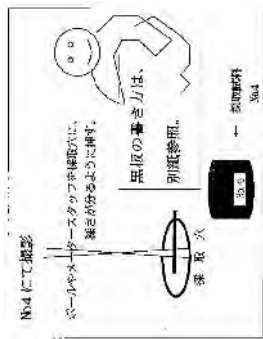 №4 にて撮影
ポールやメータースタッフを採取穴に、
深さが分るように挿す。
黒板の書き方は、
別紙参照。
採取穴
← 採取試料
№4